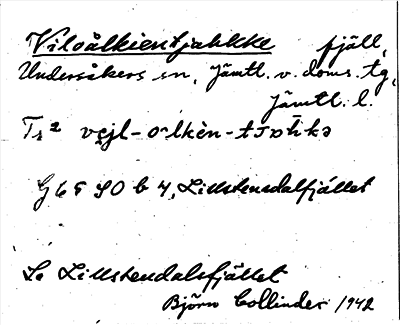 Viloålkientjahkke fjäll,
Undersåkers sn, Jämtl. v. doms. tg,
Jämtl. l.
G 65 SO b 4, Lillstensdalfjället
Se Lillstendalsfjället
Björn Collinder 1942